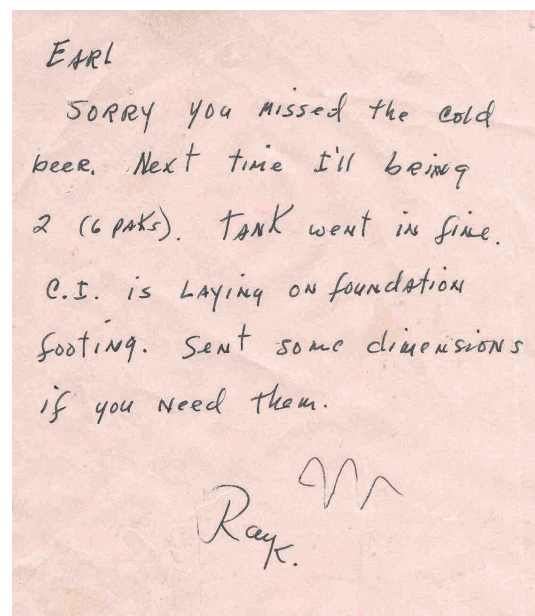 EARL
SORRY you missed the cold
beer. Next time I'll being
2 (6 PAKs). TANK went in fine.
C.I. is LAYING ON foundation
footing. Sent some dimensions
if you need them.
Ray K.